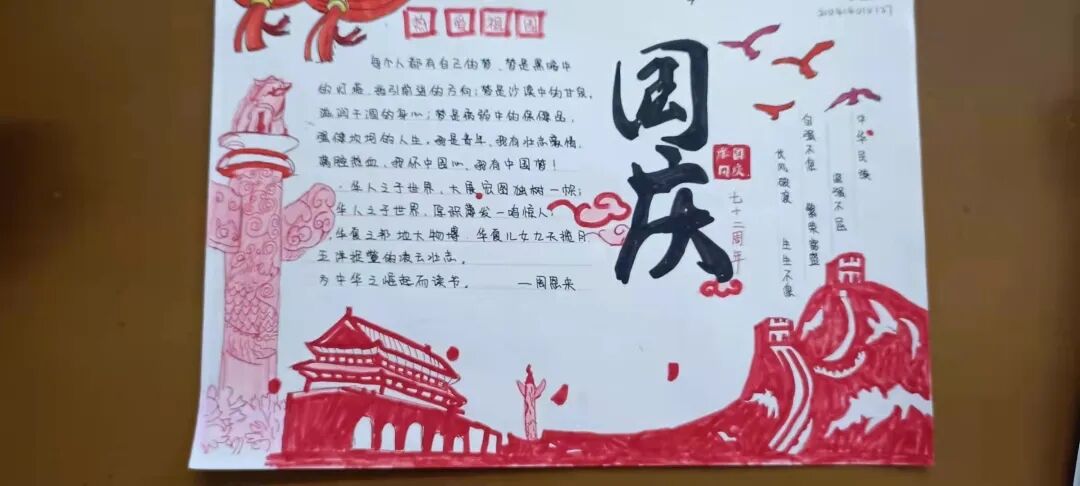 热爱祖国
每个人都有自己的梦、梦是黑暗中
的灯塔,指引前进的方向;梦是沙漠中的甘泉,
滋润干涸的身心;梦是病弱中的保健品,
强健坎坷的人生,我是青年,我有壮志豪情
满腔热血,我怀中国心,我有中国梦!
华人立于世界,大展宏图独树一帜;
华人立于世界,厚积薄发一鸣惊人;
华夏之邦地大物博,华夏儿女九天揽月
五洋捉鳖的凌云壮志。
为中华之崛起而读书。 —周恩来
国庆
七十二周年
中华民族
坚强不屈
自强不息
繁荣富盛
长风破浪
生生不息